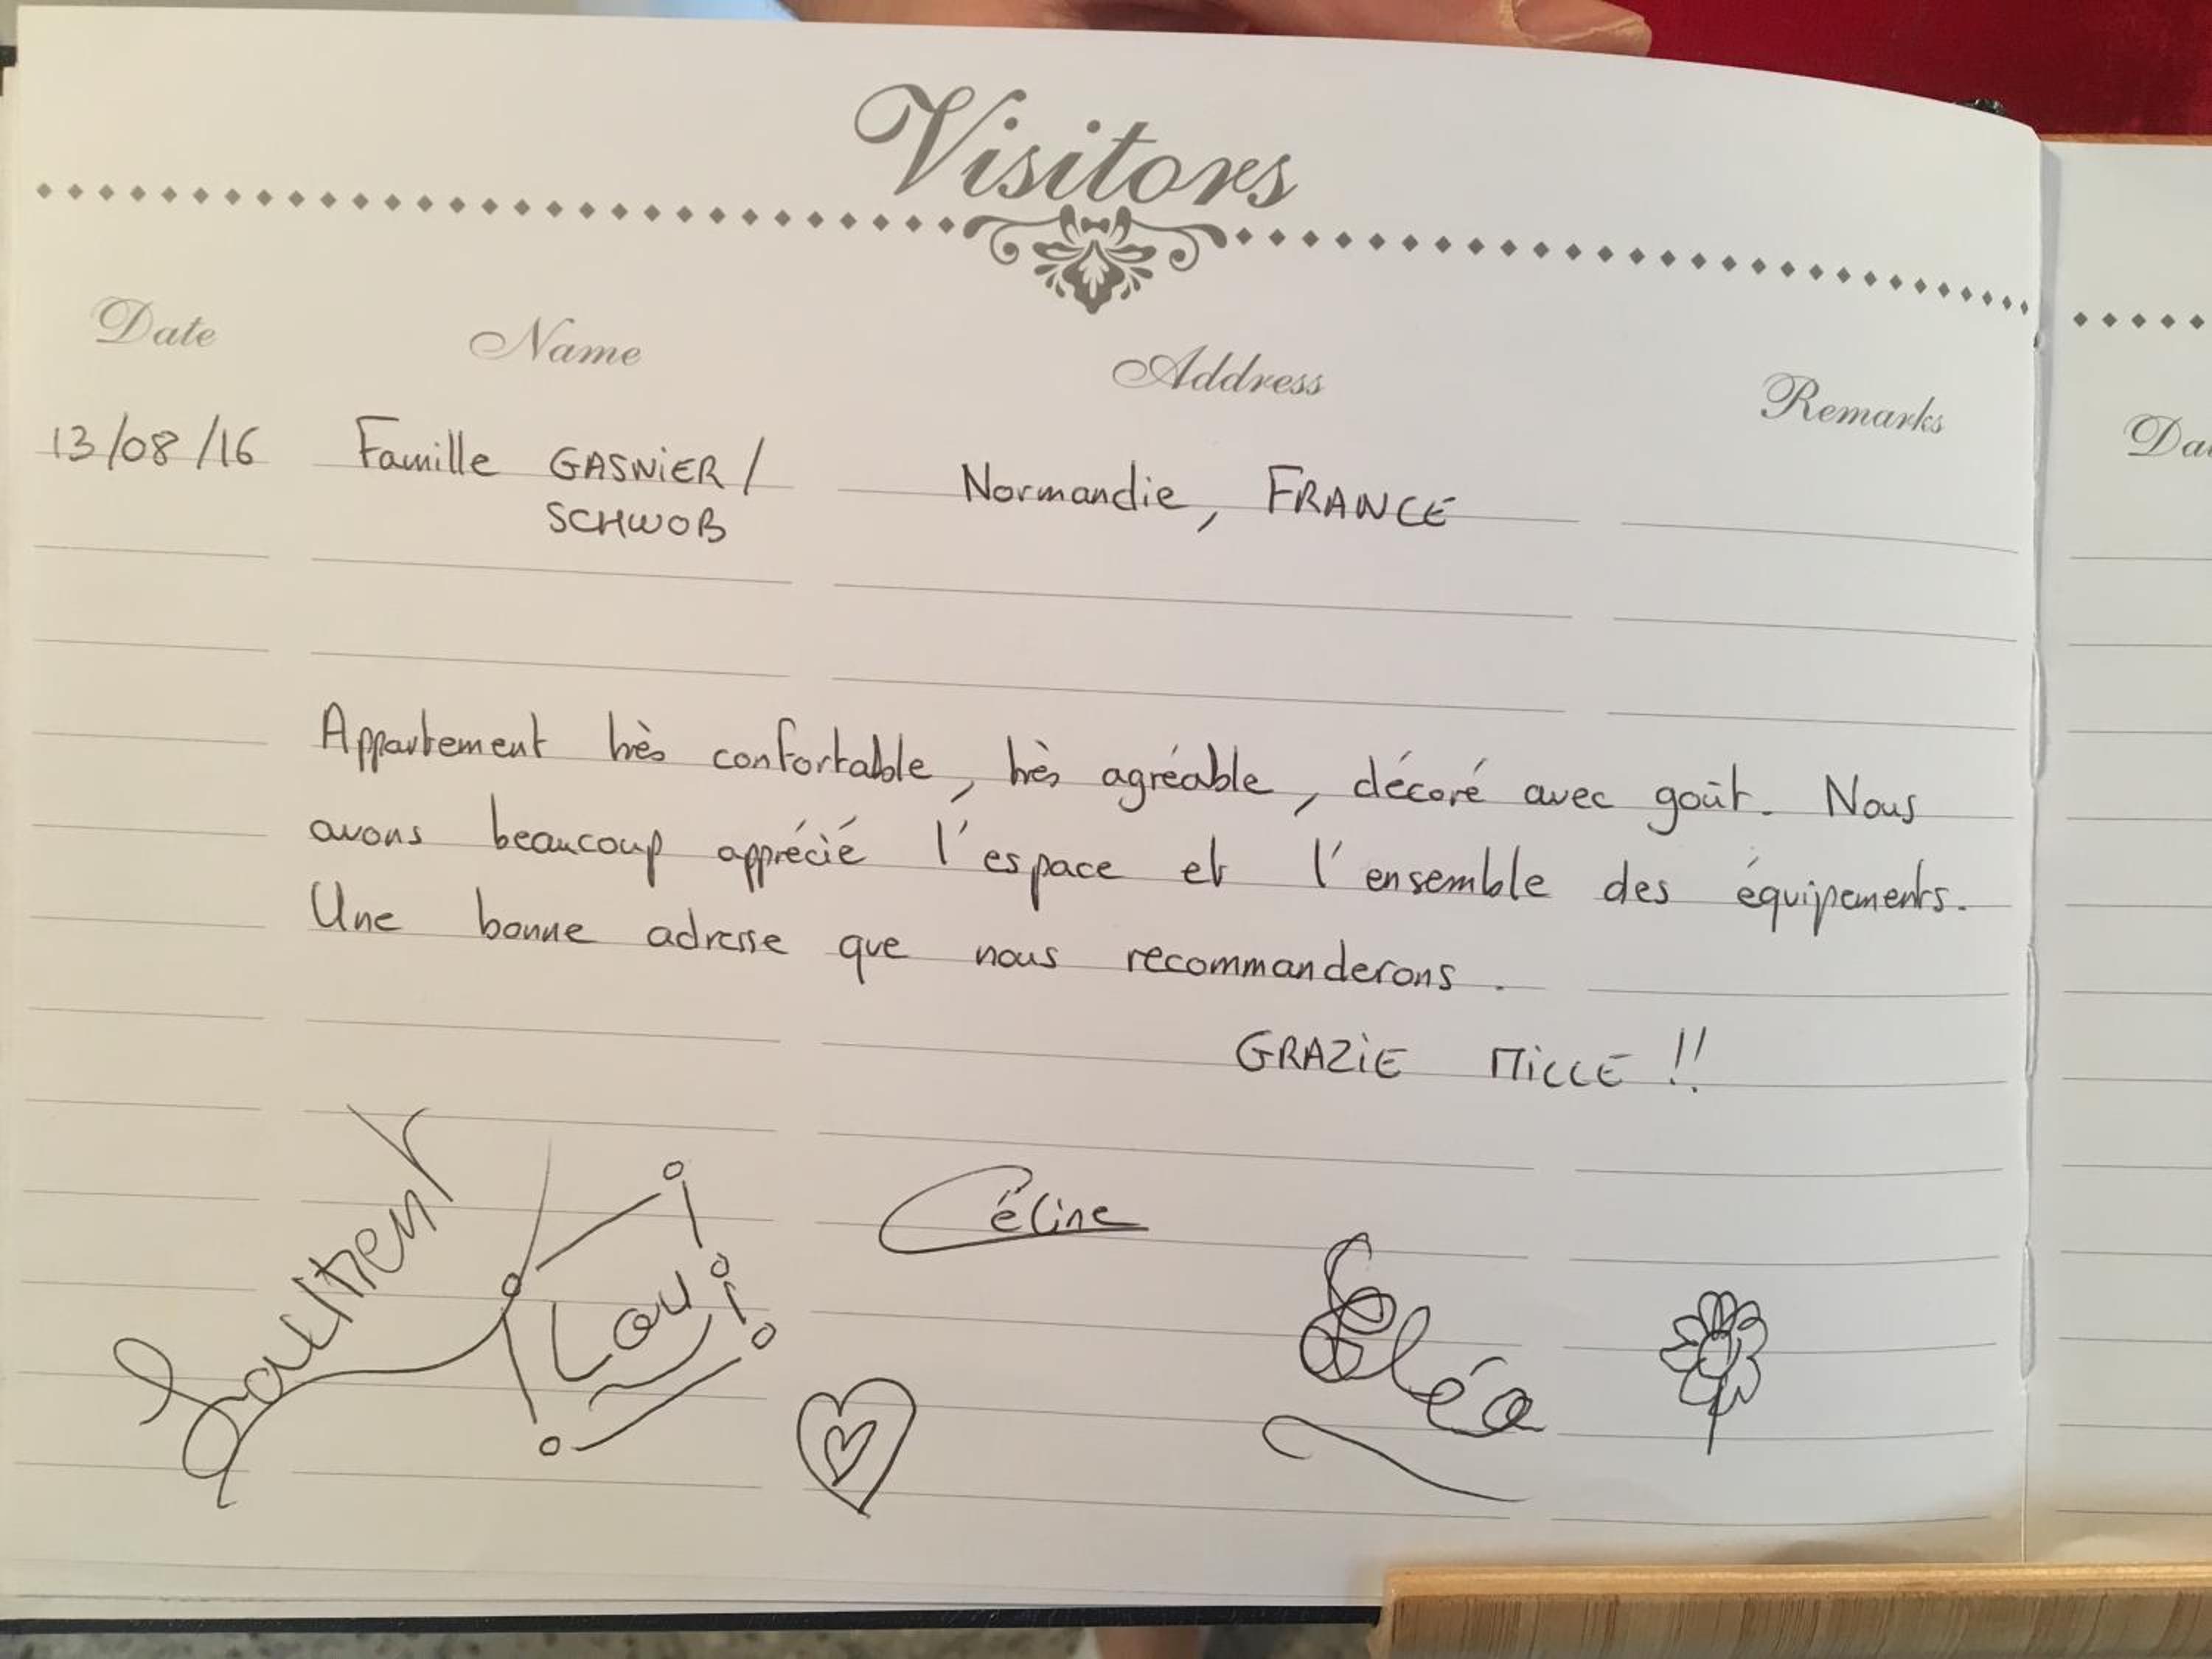 Visitors
Date Name Address Remarks
13/08/16 Famille GASNiER / Normandie, FRANCE
SCHWOB
Appartement très confortable, très agréable, décoré avec goût. Nous
avons beaucoup apprécié l'espace et l'ensemble des équipements.
Une bonne adresse que nous recommanderons.
GRAZiE MiLLE !!
Céline
Lou
Cléa